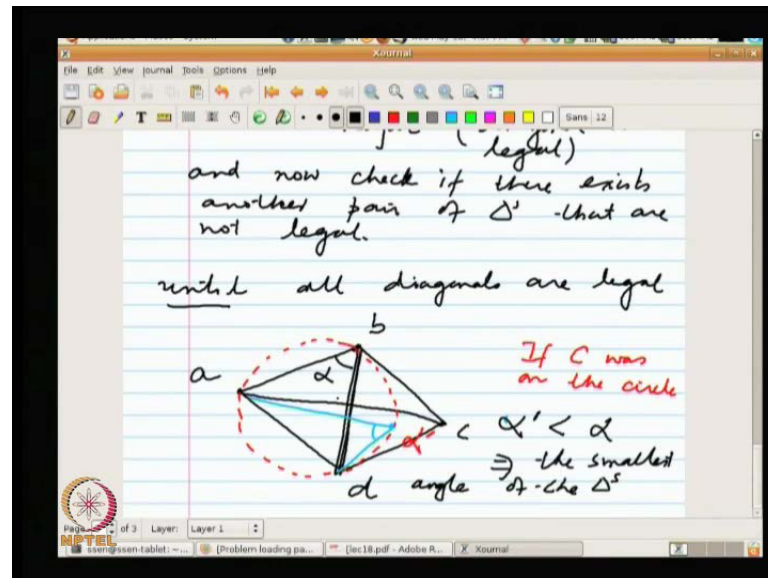 Xournal
File Edit View Journal Tools Options Help
Sans 12
legal)
and now check if there exists
another pair of Δs that are
not legal.
until all diagonals are legal
b
a
α
If C was
on the circle
α' c α' < α
⇒ the smallest
d angle of the Δs
Page of 3 Layer: Layer 1
NPTEL
ssen@ssen-tablet: ~... [Problem loading pa... [lec18.pdf - Adobe R... Xournal